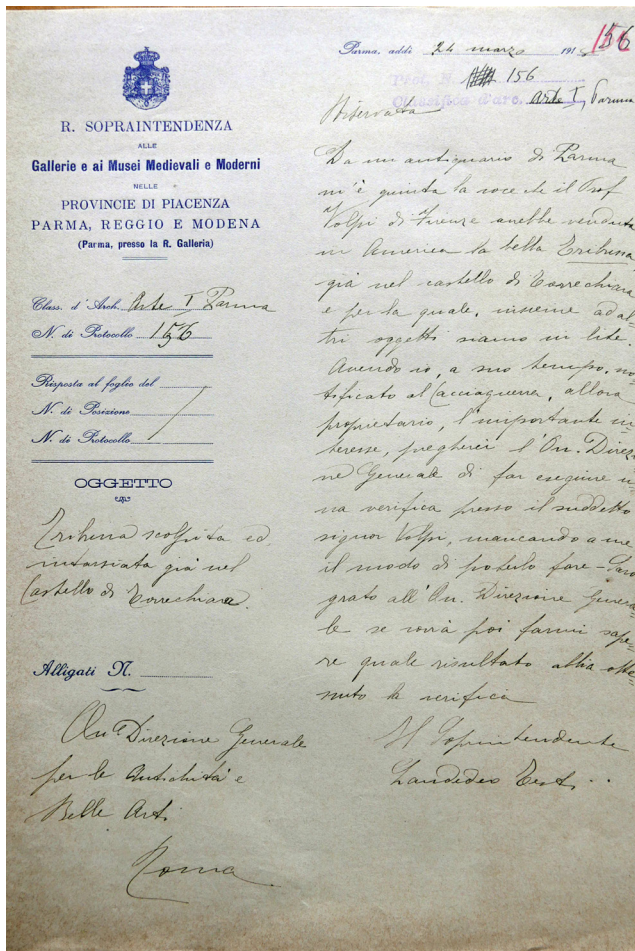 Parma, addì 24 marzo 191
156
Prot. N. 156
Classifica d'arc. Arte I, Parma
R. SOPRAINTENDENZA
ALLE
Gallerie e ai Musei Medievali e Moderni
NELLE
PROVINCIE DI PIACENZA
PARMA, REGGIO E MODENA
(Parma, presso la R. Galleria)
Class. d'Arch. Arte I Parma
N. di Protocollo 156
Risposta al foglio del
N. di Posizione
N. di Protocollo
OGGETTO
Tribuna scolpita ed
intarsiata già nel
Castello di Torrechiara.
Alligati N.
On. Direzione Generale
per le Antichità e
Belle Arti
Roma
Riservata
Da un antiquario di Parma
m'è giunta la voce che il Prof
Volpi di Firenze avrebbe venduta
in America la bella Tribuna
già nel castello di Torrechiara
e per la quale, insieme ad al
tri oggetti siamo in lite.
Avendo io, a suo tempo, no
tificato al Cacciaguerra, allora
proprietario, l'importante in
teresse, pregherei l'On. Direzio
ne Generale di far eseguire u
na verifica presso il suddetto
signor Volpi, mancando a me
il modo di poterlo fare - Sarò
grato all'On. Direzione Genera=
le se vorrà poi farmi sape=
re quale risultato abbia otte=
nuto la verifica
Il Soprintendente
Laudedeo Testi